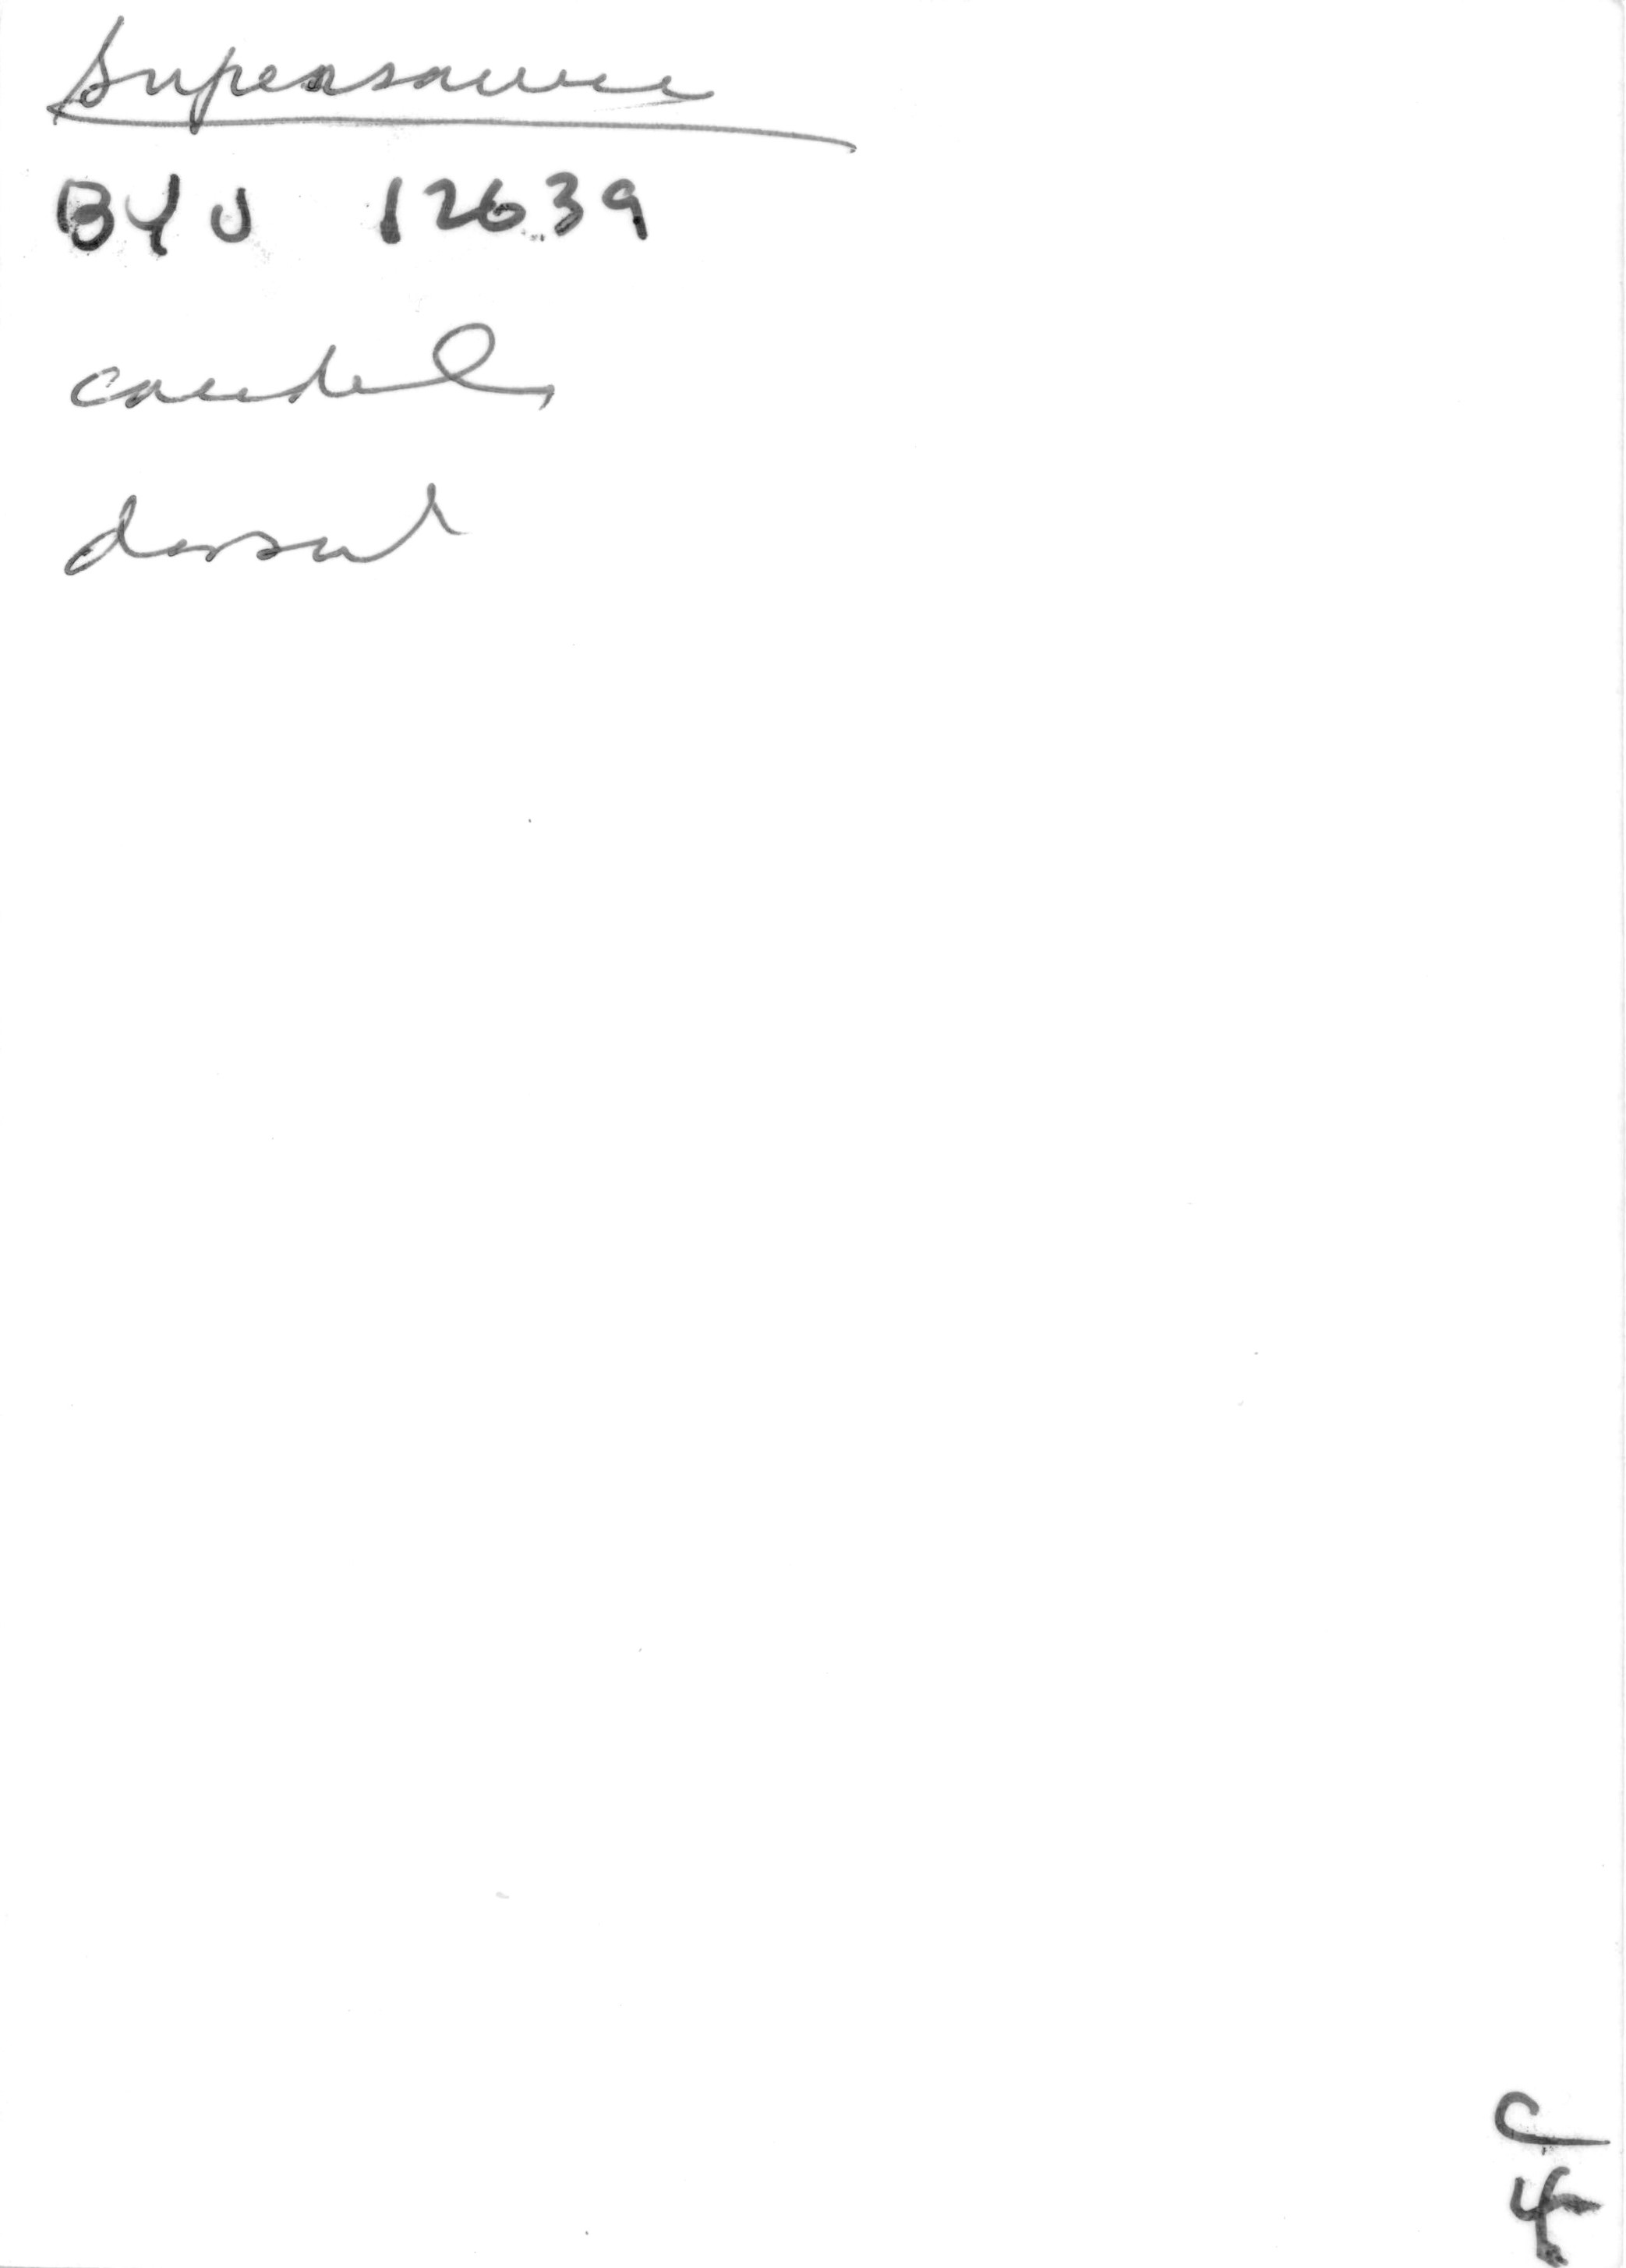 Supersaurus
BYU 12639
caudal,
dorsal
C
4